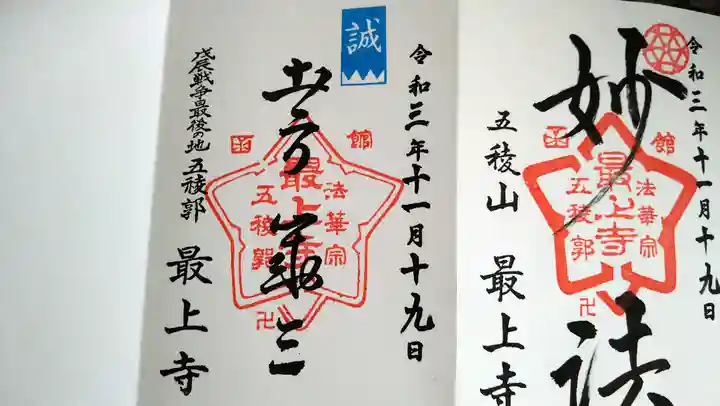 令和三年十一月十九日
妙法
館
函
最上寺
法華宗
五稜郭
卍
五稜山 最上寺
令和三年十一月十九日
誠
土方歳三
館
函
最上寺
法華宗
五稜郭
卍
戊辰戦争最後の地 五稜郭 最上寺